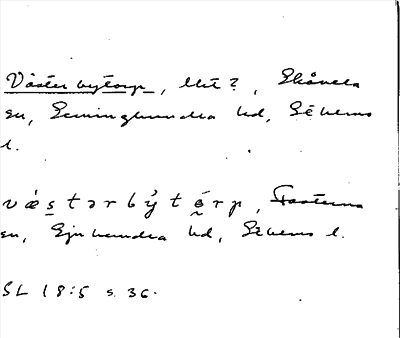 Västerbytorp, Skånela
sn, Seminghundra hd, Sthlms
l.
v ǽ s t ə r b ý t ɵ́ r p, Fasterna
sn, Sjuhundra hd, Sthlms l.
SL 18:5 s. 36.